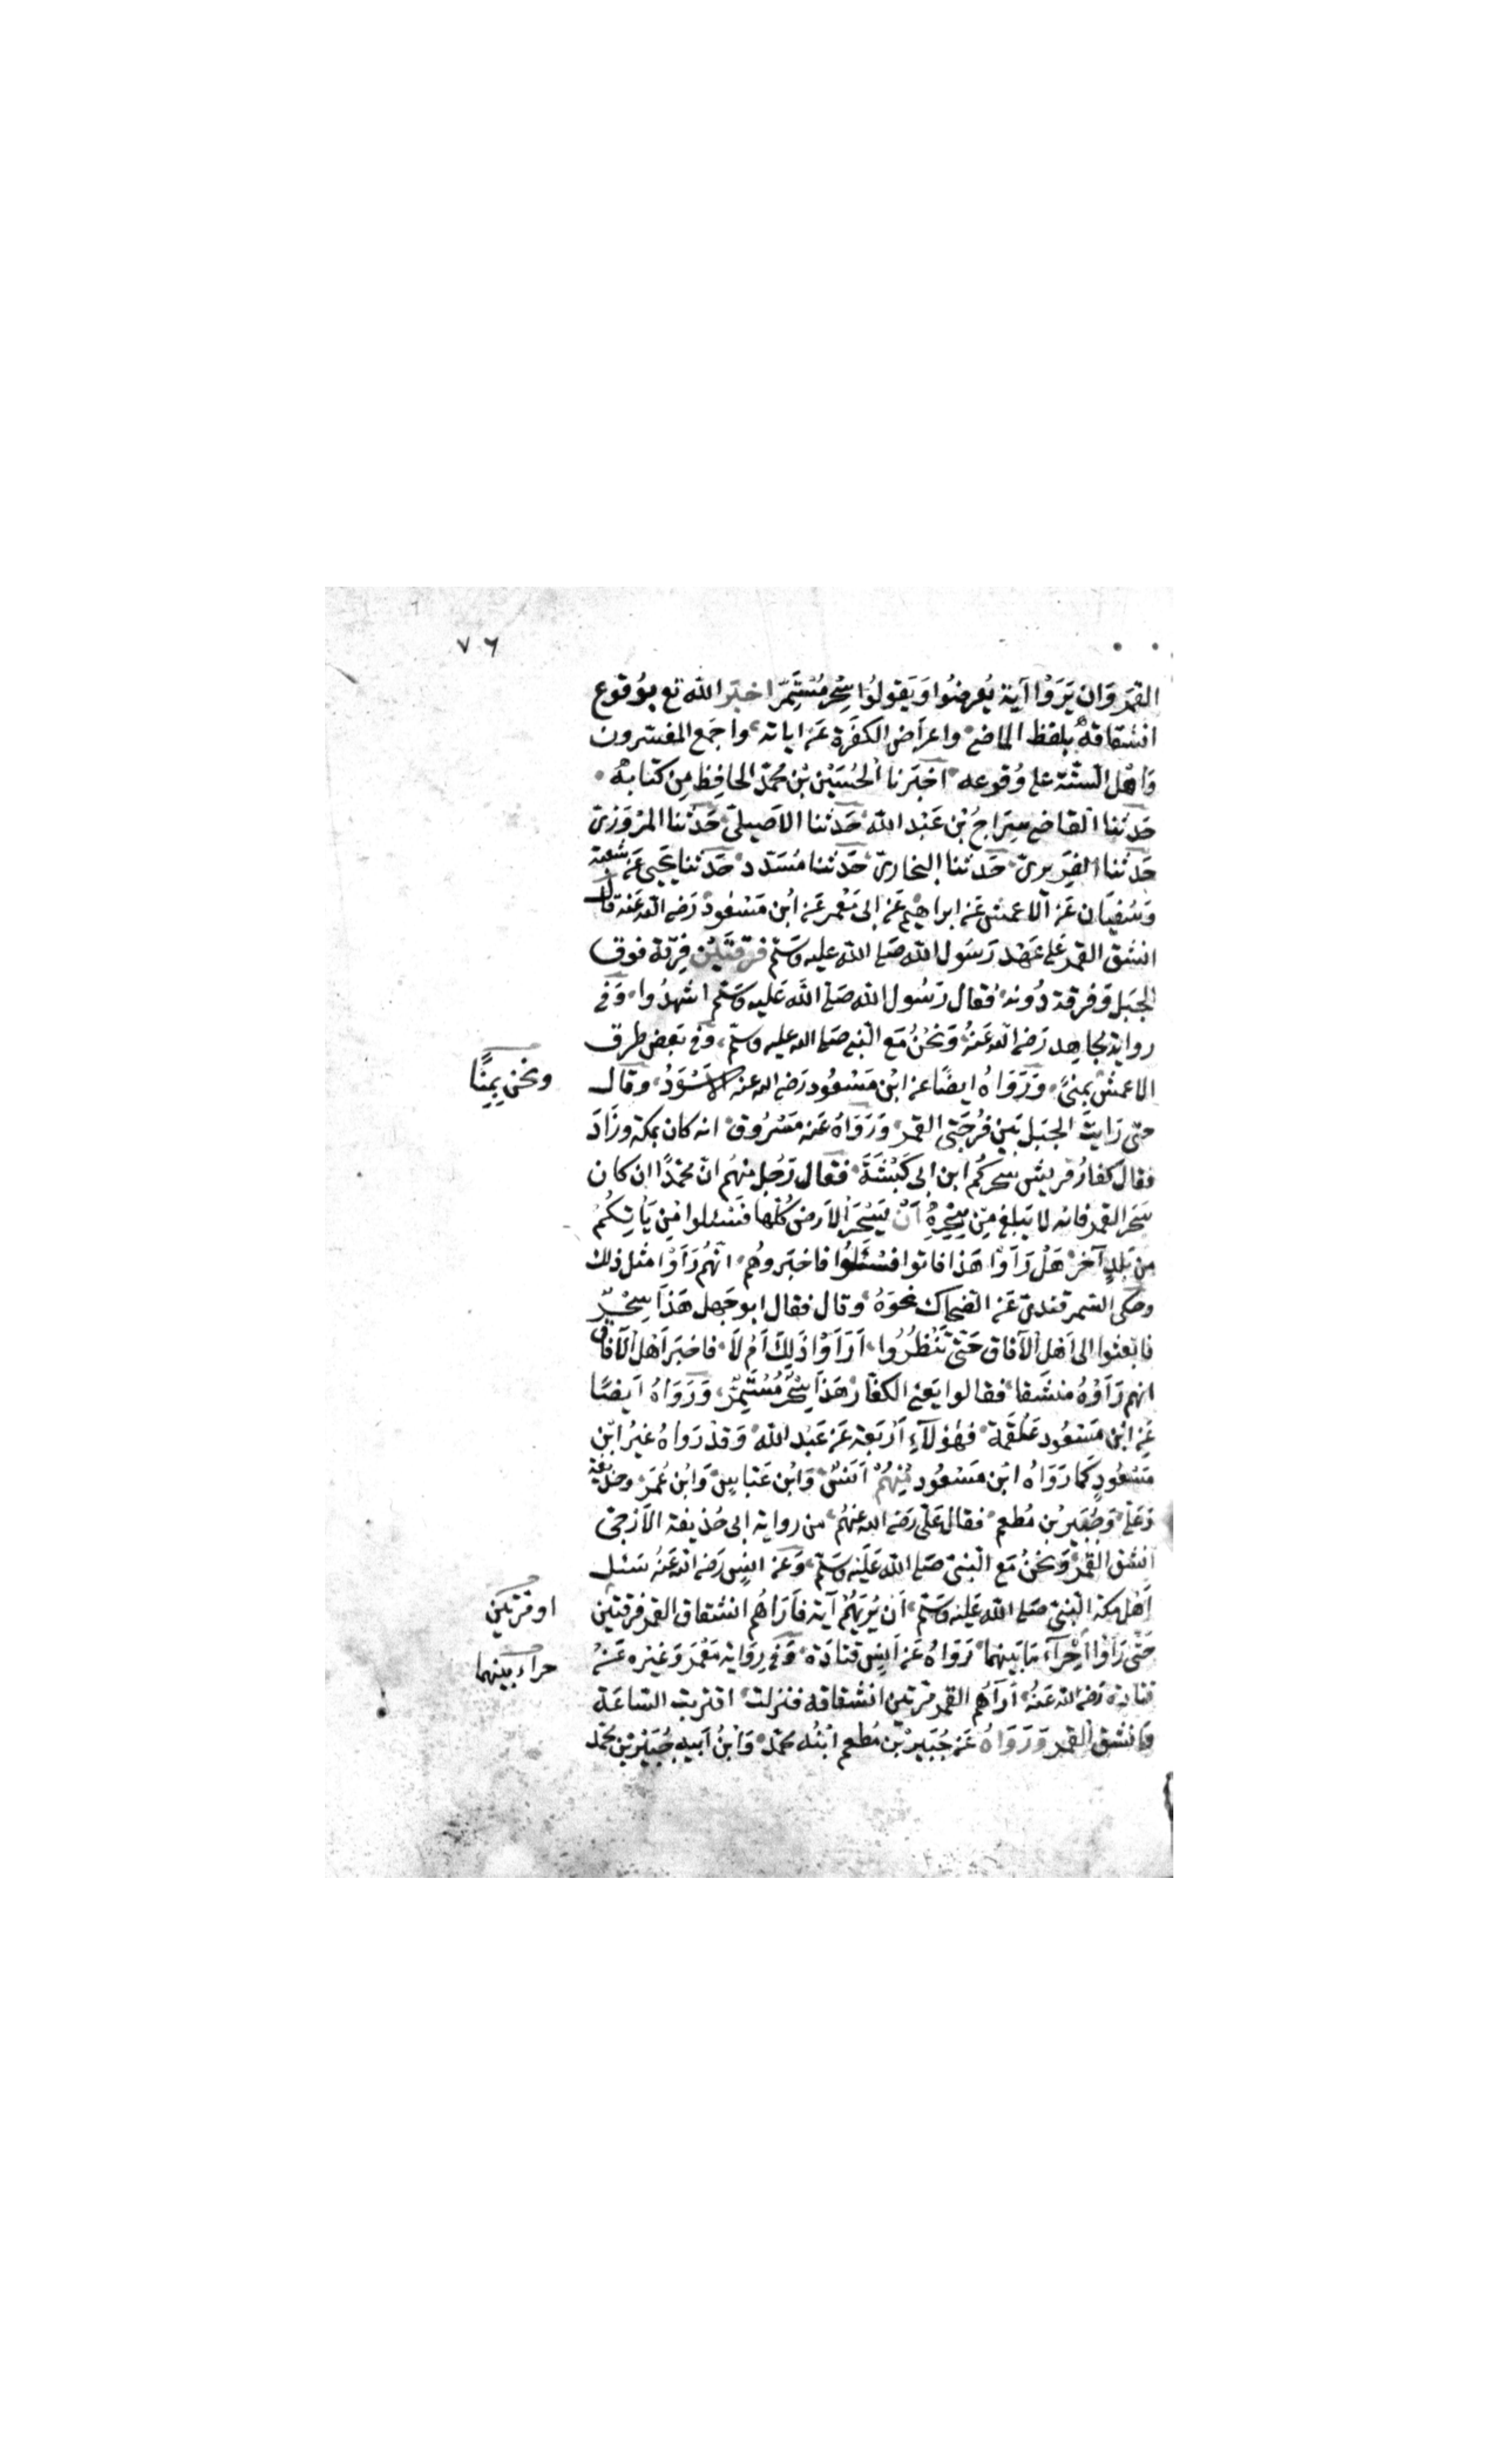 ٧٦
القمر وان يروا آية يعرضوا ويقولوا سحر مستمر اخبر الله تع بوقوع
انشقاقه بلفظ الماضى واعراض الكفرة عن اياته واجمع المفسرون
واهل السنة على وقوعه اخبرنا الحسين بن محمد الحافظ من كتابه
حدثنا القاضى سراج بن عبد الله حدثنا الاصيلى حدثنا المروزى
حدثنا الفربرى حدثنا البخارى حدثنا مسدد حدثنا يحيى عن شعبة
وسفيان عن الاعمش عن ابراهيم عن ابى معمر عن ابن مسعود رضى الله عنه قال
انشق القمر على عهد رسول الله صلى الله عليه وسلم فرقتين فرقة فوق
الجبل وفرقة دونه فقال رسول الله صلى الله عليه وسلم اشهدوا وفى
رواية مجاهد رضى الله عنه ونحن مع النبى صلى الله عليه وسلم وفى بعض طرق
الاعمش بمنى ورواه ايضا عن ابن مسعود رضى الله عنه الاسود وقال
ونحن بمنًا
حتى رايت الجبل بين فرجتى القمر ورواه عنه مسروق انه كان بمكة وزاد
فقال كفار قريش سحركم ابن ابى كبشة فقال رجل منهم ان محمدا ان كان
سحر القمر فانه لا يبلغ من سحره ان يسحر الارض كلها فسئلوا من ياتيكم
من بلد آخر هل راوا هذا فاتوا فسئلوا فاخبروهم انهم راوا مثل ذلك
وحكى السمرقندى عن الضحاك نحوه وقال فقال ابو جهل هذا سحر
فابعثوا الى اهل الآفاق حتى تنظروا أراوا ذلك ام لا فاخبر اهل الآفاق
انهم راوه منشقا فقالوا يعنى الكفار هذا سحر مستمر ورواه ايضا
عن ابن مسعود علقمة فهؤلآء اربعة عن عبد الله وقد رواه غير ابن
مسعود كما رواه ابن مسعود منهم انس وابن عباس وابن عمر وحذيفة
وعلى وجبير بن مطعم فقال على رضى الله عنهم من رواية ابى حذيفة الارحبى
انشق القمر ونحن مع النبى صلى الله عليه وسلم وعن انس رضى الله عنه سئل
اهل مكة النبى صلى الله عليه وسلم ان يريهم آية فاراهم انشقاق القمر فرقتين
او مرتين
حتى راوا حرآء ما بينهما رواه عن انس قتادة وفى رواية معمر وغيره عن
حراء بينهما
قتادة رضى الله عنه اراهم القمر مرتين انشقاقه فنزلت اقتربت الساعة
وانشق القمر ورواه عن جبير بن مطعم ابنه محمد وابن ابيه جبير بن محمد